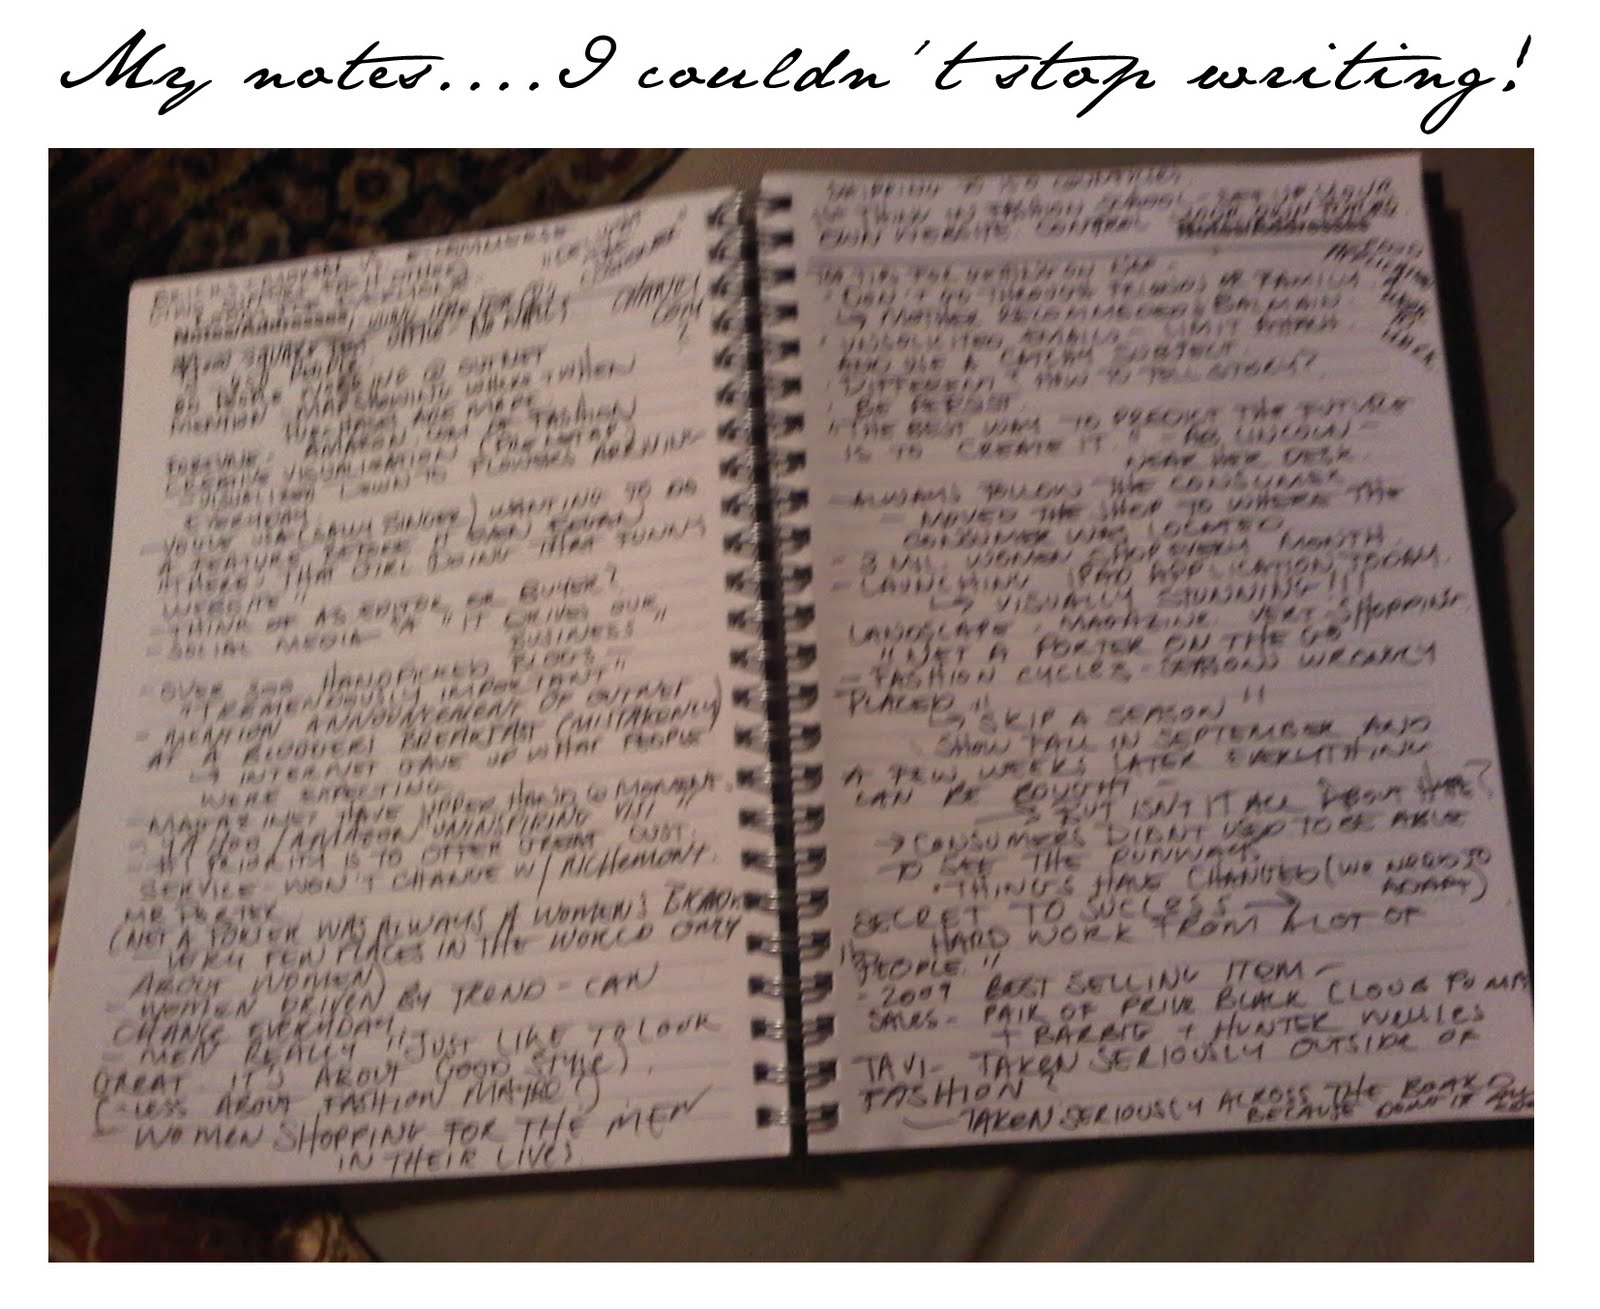 My notes....I couldn't stop writing!
BRICKS & MORTAR VS. E-COMMERSE
NO WALLS
CHANEL
COM
?
PEOPLE
@ OUTNET
MENTION MAP SHOWING WHERE + WHEN
PURCHASES ARE MADE
FORTUNE: AMAZON.COM OF FASHION
CREATIVE VISUALIZATION
VISUALIZED DOWN TO FLOWERS ARRIVING
EVERYDAY
VOGUE USA (SALLY SINGER) WANTING TO DO
A FEATURE BEFORE IT EVEN BEGAN
"THERE'S THAT GIRL DOING THAT FUNNY
WEBSITE"
- THINK OF AS EDITOR OR BUYER?
- SOCIAL MEDIA - "IT DRIVES OUR
BUSINESS"
- OVER 300 HANDPICKED BLOGS -
"TREMENDOUSLY IMPORTANT"
- MENTION ANNOUNCEMENT OF OUTNET
AT A BLOGGERS BREAKFAST (MISTAKENLY)
↳ INTERNET GAVE UP WHAT PEOPLE
WERE EXPECTING
- MAGAZINES HAVE UPPER HAND @ MOMENT.
- YAHOO/AMAZON UNINSPIRING
- #1 PRIORITY IS TO OFFER GREAT CUST.
SERVICE - WON'T CHANGE W/ RICHEMONT.
MR PORTER
(NET A PORTER WAS ALWAYS A WOMEN'S BRAND
- VERY FEW PLACES IN THE WORLD ONLY
ABOUT WOMEN)
- WOMEN DRIVEN BY TREND - CAN
CHANGE EVERYDAY
- MEN REALLY "JUST LIKE TO LOOK
GREAT IT'S ABOUT GOOD STYLE)
(- LESS ABOUT FASHION
- WOMEN SHOPPING FOR THE MEN
IN THEIR LIVES
SHIPPING TO 150 COUNTRIES
IN FASHION SCHOOL - SET UP YOUR
OWN WEBSITE. CONTROL YOUR OWN FUTURE
TIPS FOR
· DON'T GO THROUGH FRIENDS OR FAMILY
↳ MOTHER RECOMMENDED BALMAIN
· UNSOLICITED EMAILS - LIMIT
AND USE A CATCHY SUBJECT
· DIFFERENT? HOW TO TELL STORY?
· BE PERSIST.
"THE BEST WAY TO PREDICT THE FUTURE
IS TO CREATE IT." - AB. LINCOLN -
NEAR HER DESK
- ALWAYS FOLLOW THE CONSUMER
- MOVED THE SHOP TO WHERE THE
CONSUMER WAS LOCATED
- 3 MIL. WOMEN SHOP EVERY MONTH
- LAUNCHING IPAD APPLICATION TODAY
↳ VISUALLY STUNNING!!!
LANDSCAPE - MAGAZINE VERT - SHOPPING
"NET A PORTER ON THE GO"
- FASHION CYCLES - SEASONS WRONGLY
PLACED"
↳ SKIP A SEASON"
SHOW FALL IN SEPTEMBER AND
A FEW WEEKS LATER EVERYTHING
CAN BE BOUGHT -
→ BUT ISN'T IT ALL ABOUT
→ CONSUMERS DIDNT USED TO BE ABLE
TO SEE THE RUNWAYS
· THINGS HAVE CHANGED (WE NEED TO
ADAPT)
SECRET TO SUCCESS →
HARD WORK FROM A LOT OF
PEOPLE."
- 2009 BEST SELLING ITEM -
SALES - PAIR OF PRIVE BLACK CLOUB PUMPS
+ BARBIE + HUNTER WELLIES
TAVI - TAKEN SERIOUSLY OUTSIDE OF
FASHION?
- TAKEN SERIOUSLY ACROSS THE BOARD
BECAUSE